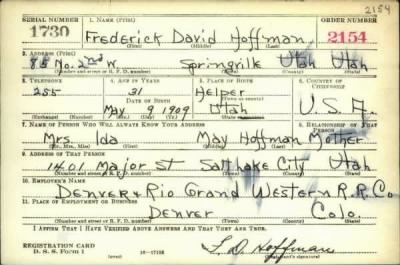 2154
SERIAL NUMBER 1. NAME (Print) ORDER NUMBER
1730 Frederick David Hoffman 2154
(First) (Middle) (Last)
2. ADDRESS (Print)
85 No. 2nd W. Springville Utah Utah
(Number and street or R. F. D. number) (Town) (County) (State)
3. TELEPHONE 4. AGE IN YEARS 5. PLACE OF BIRTH 6. COUNTRY OF CITIZENSHIP
255 31 Helper
DATE OF BIRTH (Town or county) U.S.A.
May 9 1909 Utah
(Mo.) (Day) (Yr.) (State or country)
7. NAME OF PERSON WHO WILL ALWAYS KNOW YOUR ADDRESS 8. RELATIONSHIP OF THAT PERSON
Mrs Ida May Hoffman Mother
(Mr., Mrs., Miss) (First) (Middle) (Last)
9. ADDRESS OF THAT PERSON
1401 Major St Salt Lake City Utah
(Number and street or R. F. D. number) (Town) (County) (State)
10. EMPLOYER'S NAME
Denver & Rio Grand Western R.R. Co
11. PLACE OF EMPLOYMENT OR BUSINESS
Denver Colo.
(Number and street or R. F. D. number) (Town) (County) (State)
I AFFIRM THAT I HAVE VERIFIED ABOVE ANSWERS AND THAT THEY ARE TRUE.
REGISTRATION CARD
D. S. S. FORM 1 (over) 16—17105 Hoffman
(Registrant's signature)